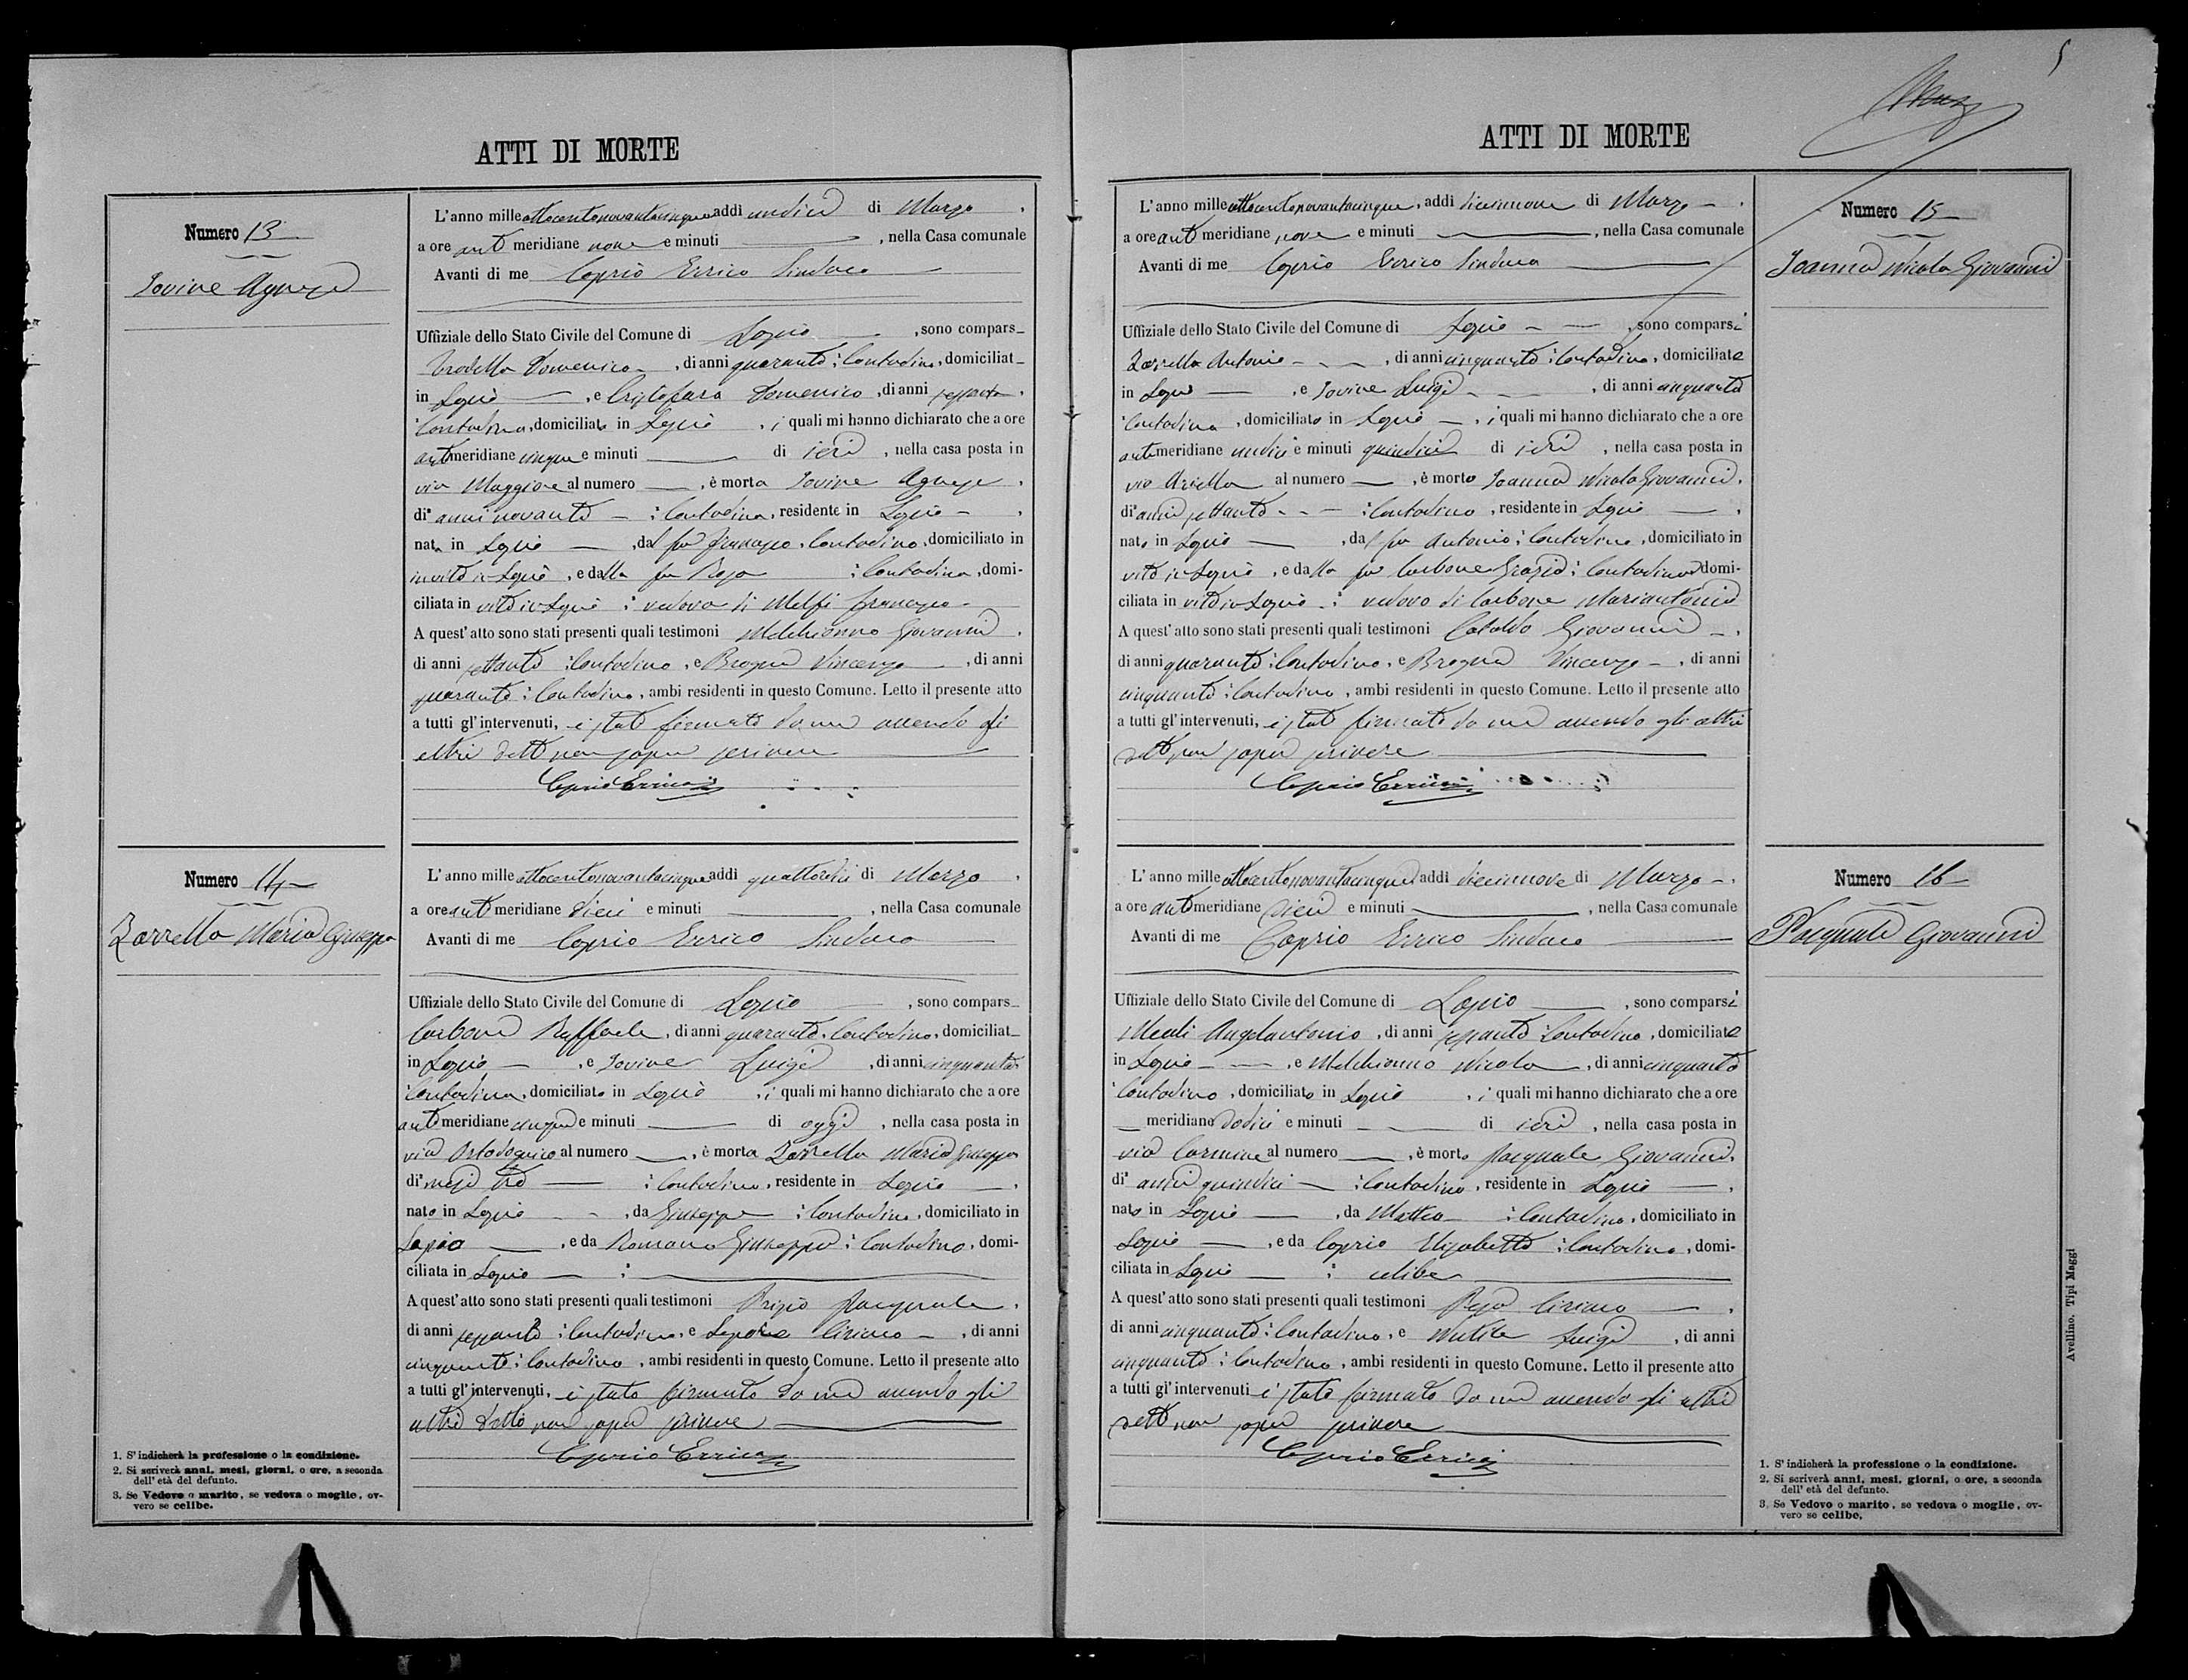 ATTI DI MORTE
Numero 13
Iovine Agnese
L'anno mille ottocentonovantacinque addì undici di Marzo
a ore anti meridiane nove e minuti , nella Casa comunale
Avanti di me Caprio Errico Sindaco
Uffiziale dello Stato Civile del Comune di Lapio , sono compars
Domenico , di anni quaranta : Contadino , domiciliat
in Lapio , e Cristofaro Domenico , di anni sessanta
Contadino , domiciliato in Lapio , i quali mi hanno dichiarato che a ore
anti meridiane cinque e minuti di ieri , nella casa posta in
via Maggiore al numero , è morta Iovine Agnese
di anni novanta : Contadina , residente in Lapio
nata in Lapio , dal fu Francesco , Contadino , domiciliato in
in vita in Lapio , e dalla fu Rosa : Contadina , domi-
ciliata in vita in Lapio : vedova di Melfi Francesco
A quest' atto sono stati presenti quali testimoni Melchionno Giovanni
di anni settanta : Contadino , e Brogna Vincenzo , di anni
quaranta : Contadino , ambi residenti in questo Comune. Letto il presente atto
a tutti gl' intervenuti, è stato firmato da me avendo gli
altri detto non saper scrivere
Caprio Errico
Numero 14
Zarrella Maria Giuseppa
L' anno mille ottocentonovantacinque addì quattordici di Marzo
a ore anti meridiane dieci e minuti , nella Casa comunale
Avanti di me Caprio Errico Sindaco
Uffiziale dello Stato Civile del Comune di Lapio , sono compars
Carbone Raffaele , di anni quaranta , Contadino , domiciliat
in Lapio , e Iovine Luigi , di anni cinquanta
Contadino , domiciliato in Lapio , i quali mi hanno dichiarato che a ore
anti meridiane cinque e minuti di oggi , nella casa posta in
via al numero , è morta Zarrella Maria Giuseppa
di mesi tre : Contadina , residente in Lapio
nato in Lapio , da Giuseppe : Contadino , domiciliato in
Lapio , e da Romano Giuseppa : Contadina , domi-
ciliata in Lapio :
A quest' atto sono stati presenti quali testimoni Pasquale
di anni sessanta : Contadino , e Lepore Ciriaco , di anni
cinquanta : Contadino , ambi residenti in questo Comune. Letto il presente atto
a tutti gl' intervenuti, è stato firmato da me avendo gli
altri detto non saper scrivere
Caprio Errico
1. S' indicherà la professione o la condizione.
2. Si scriverà anni, mesi, giorni, o ore, a seconda
dell' età del defunto.
3. Se Vedovo o marito, se vedova o moglie, ov-
vero se celibe.
5
ATTI DI MORTE
L' anno mille ottocentonovantacinque , addì diciannove di Marzo
a ore anti meridiane nove e minuti , nella Casa comunale
Avanti di me Caprio Errico Sindaco
Uffiziale dello Stato Civile del Comune di Lapio , sono comparsi
Zarrella Antonio , di anni cinquanta : Contadino , domiciliato
in Lapio , e Iovine Luigi , di anni cinquanta
Contadino , domiciliato in Lapio , i quali mi hanno dichiarato che a ore
anti meridiane undici e minuti quindici di ieri , nella casa posta in
via Ariella al numero , è morto Ioanna Nicola Giovanni
di anni settanta : Contadino , residente in Lapio
nato in Lapio , dal fu Antonio : Contadino , domiciliato in
vita in Lapio , e dalla fu Carbone Grazia : Contadina domi-
ciliata in vita in Lapio : vedovo di Carbone Mariantonia
A quest' atto sono stati presenti quali testimoni Cataldo Giovanni
di anni quaranta : Contadino , e Brogna Vincenzo , di anni
cinquanta : Contadino , ambi residenti in questo Comune. Letto il presente atto
a tutti gl' intervenuti, è stato firmato da me avendo gli altri
detto non saper scrivere
Caprio Errico
Numero 15
Ioanna Nicola Giovanni
L' anno mille ottocentonovantacinque addì diciannove di Marzo
a ore anti meridiane dieci e minuti , nella Casa comunale
Avanti di me Caprio Errico Sindaco
Uffiziale dello Stato Civile del Comune di Lapio , sono comparsi
Meoli Angelantonio , di anni sessanta : Contadino , domiciliato
in Lapio , e Melchionno Nicola , di anni cinquanta
Contadino , domiciliato in Lapio , i quali mi hanno dichiarato che a ore
meridiane dodici e minuti di ieri , nella casa posta in
via Carmine al numero , è morto Pasquale Giovanni
di anni quindici : Contadino , residente in Lapio
nato in Lapio , da Matteo : Contadino , domiciliato in
Lapio , e da Caprio Elisabetta : Contadina , domi-
ciliata in Lapio : celibe
A quest' atto sono stati presenti quali testimoni Ciriaco
di anni cinquanta : Contadino , e Luigi , di anni
cinquanta : Contadino , ambi residenti in questo Comune. Letto il presente atto
a tutti gl' intervenuti è stato firmato da me avendo gli altri
detto non saper scrivere
Caprio Errico
Numero 16
Pasquale Giovanni
1. S' indicherà la professione o la condizione.
2. Si scriverà anni, mesi, giorni, o ore, a seconda
dell' età del defunto.
3. Se Vedovo o marito, se vedova o moglie, ov-
vero se celibe.
Avellino. Tipi Maggi